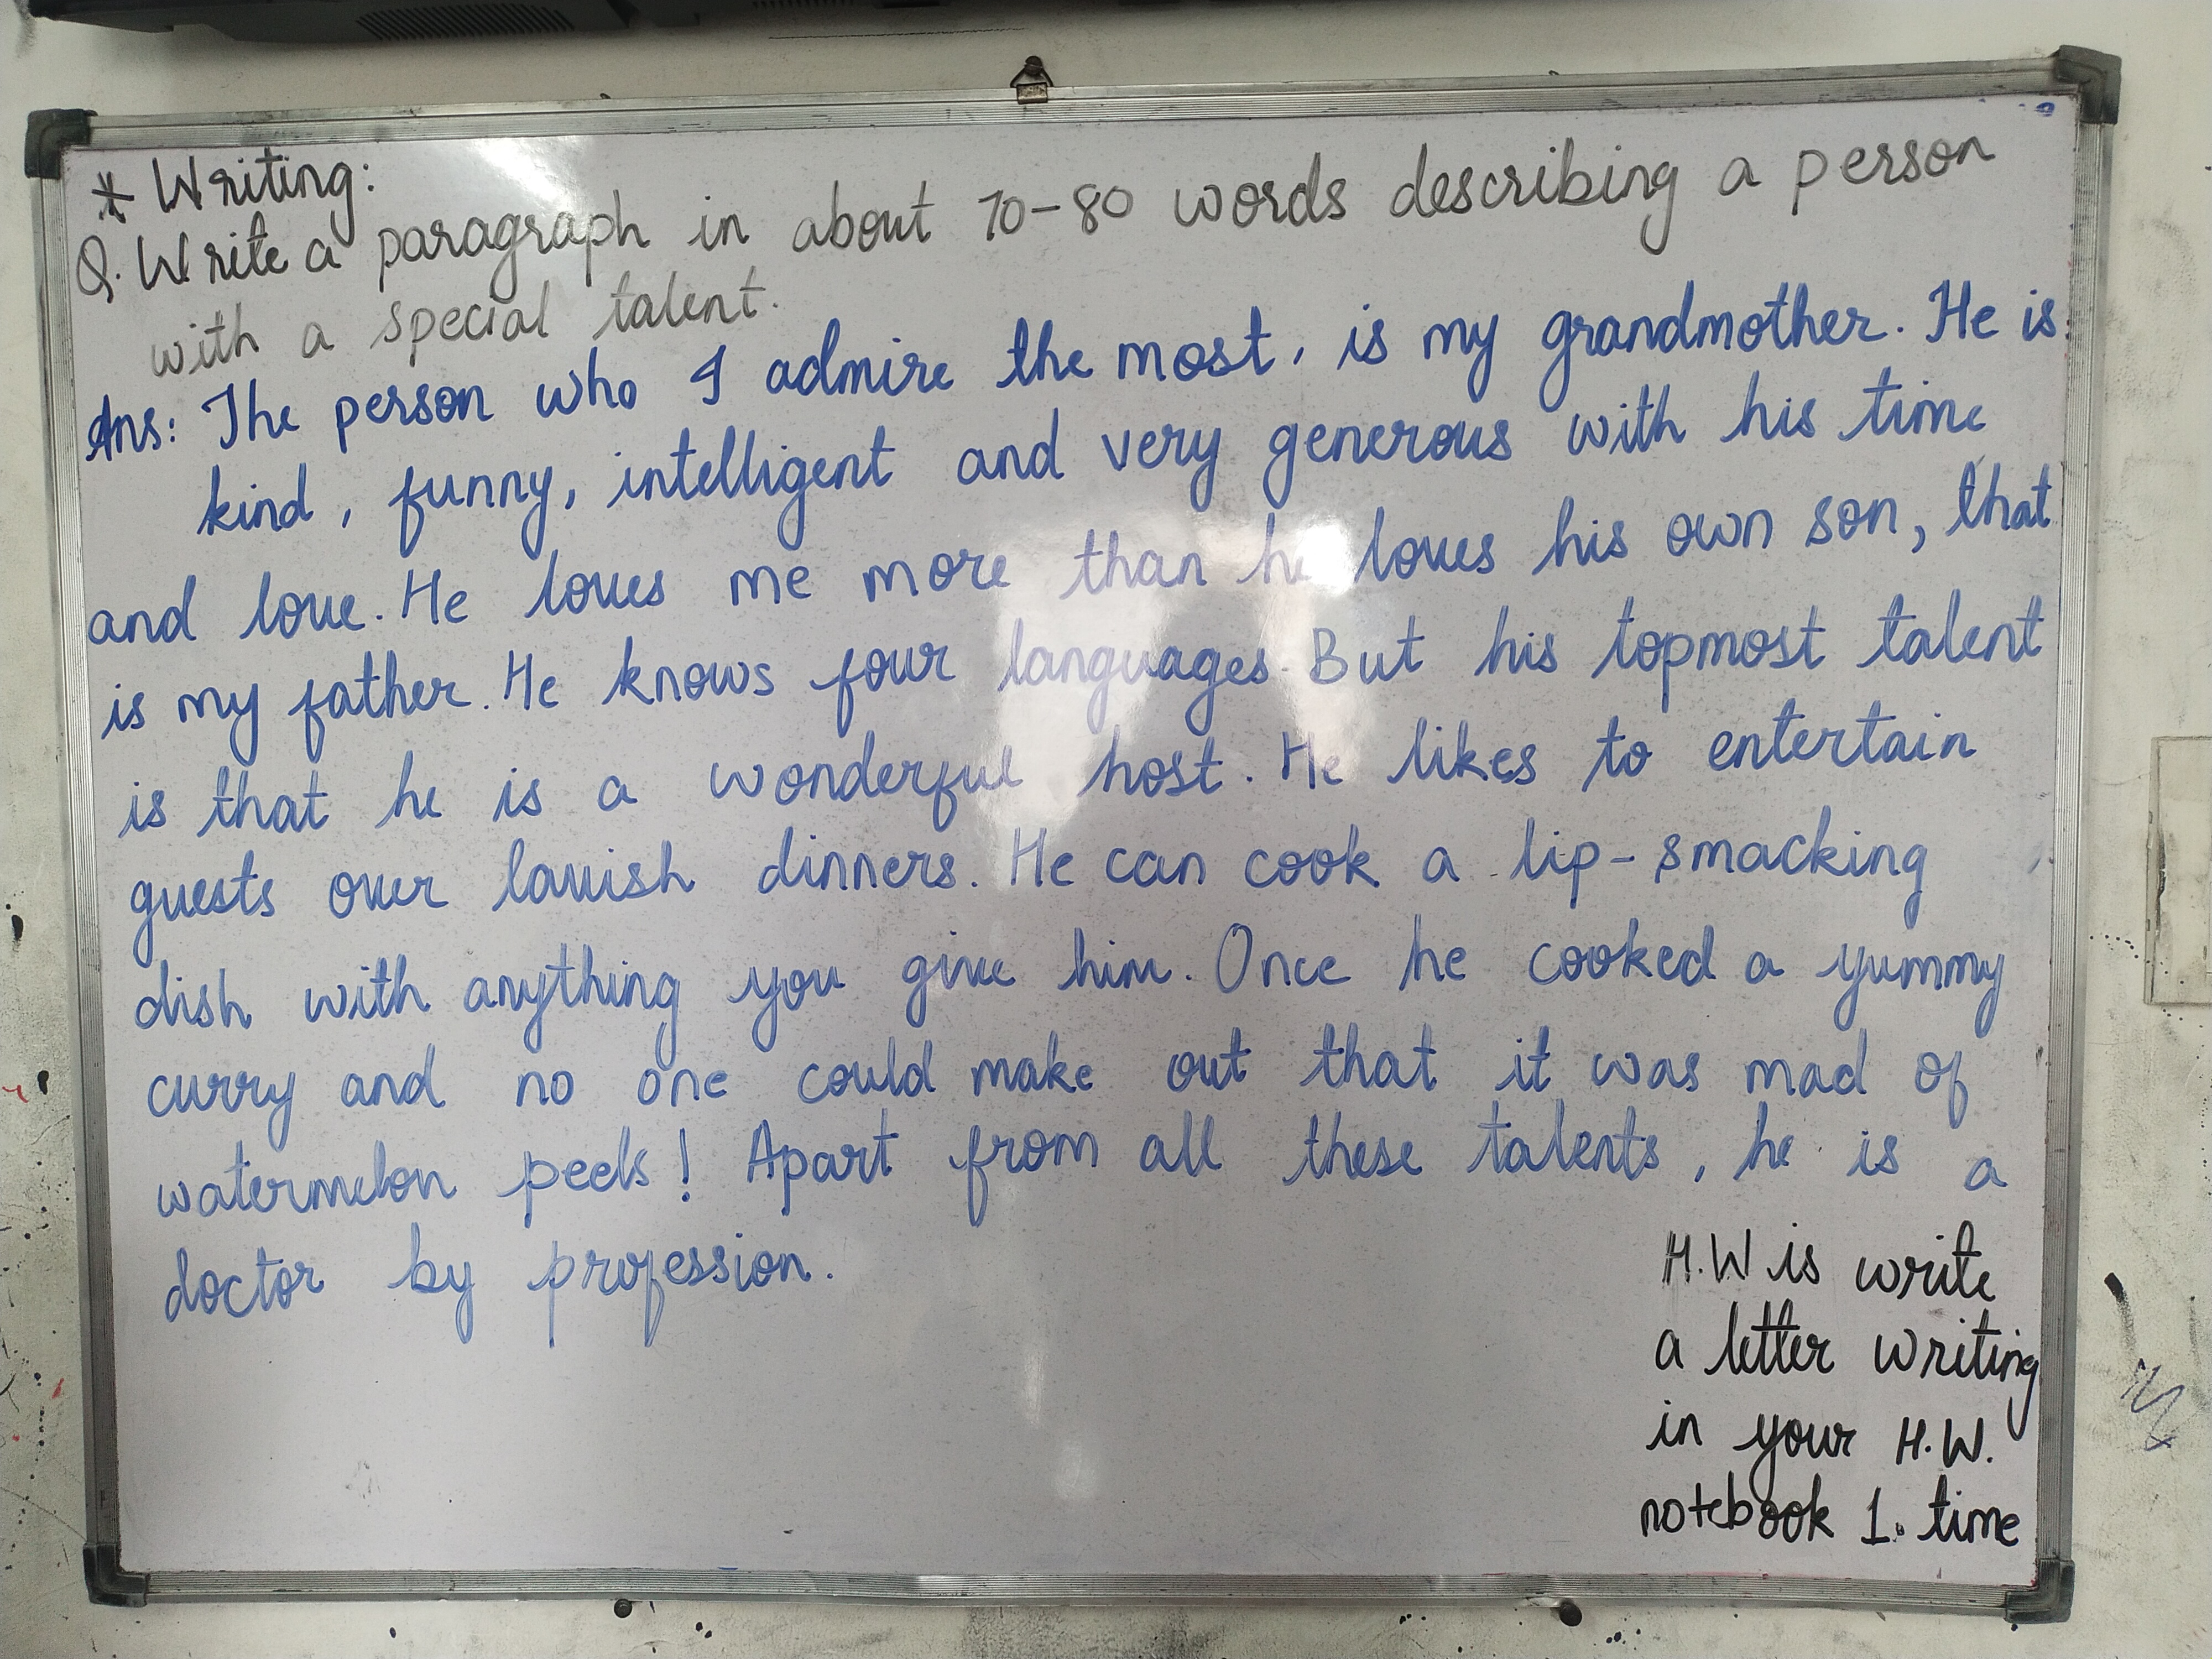 * Writing:
Q. Write a paragraph in about 70-80 words describing a person
with a special talent.
Ans: The person who I admire the most, is my grandmother. He is
kind, funny, intelligent and very generous with his time
and love. He loves me more than he loves his own son, that
is my father. He knows four languages. But his topmost talent
is that he is a wonderful host. He likes to entertain
guests over lavish dinners. He can cook a lip-smacking
dish with anything you give him. Once he cooked a yummy
curry and no one could make out that it was mad of
watermelon peels! Apart from all these talents, he is a
doctor by profession.
H.W is write
a letter writing
in your H.W.
notebook 1. time